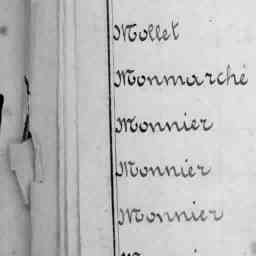 Mollet
Monmarché
Monnier
Monnier
Monnier